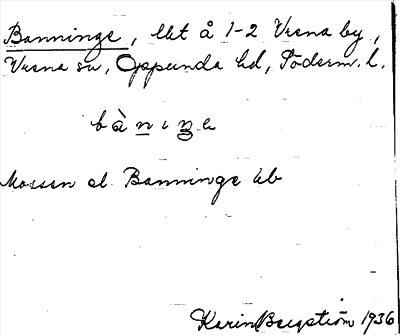 Banninge, lkt å 1-2 Vrena by,
Vrena sn, Oppunda hd, Söderm. l.
bànıŋe
Mossen el Banninge kb
Karin Bergström 1936